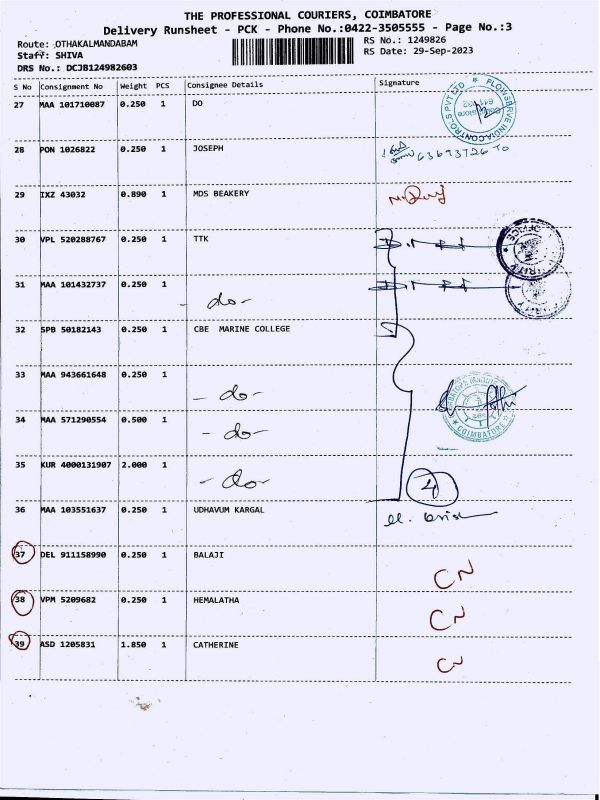 THE PROFESSIONAL COURIERS, COIMBATORE
Delivery Runsheet - PCK - Phone No.:0422-3505555 - Page No.:3
Route: OTHAKALMANDABAM RS No.: 1249826
Staff: SHIVA RS Date: 29-Sep-2023
DRS No.: DCJB124982603
S No Consignment No Weight PCS Consignee Details Signature
27 MAA 101710087 0.250 1 DO
FLOWSERVE INDIA CONTROLS PVT LTD
28 PON 1026822 0.250 1 JOSEPH
29 IXZ 43032 0.890 1 MDS BEAKERY
30 VPL 520288767 0.250 1 TTK
31 MAA 101432737 0.250 1 - do -
32 SPB 50182143 0.250 1 CBE MARINE COLLEGE
33 MAA 943661648 0.250 1 - do -
COIMBATORE
34 MAA 571290554 0.500 1 - do -
35 KUR 4000131907 2.000 1 - do - 4
36 MAA 103551637 0.250 1 UDHAVUM KARGAL
37 DEL 911158990 0.250 1 BALAJI CN
38 VPM 5209682 0.250 1 HEMALATHA CN
39 ASD 1205831 1.850 1 CATHERINE CN